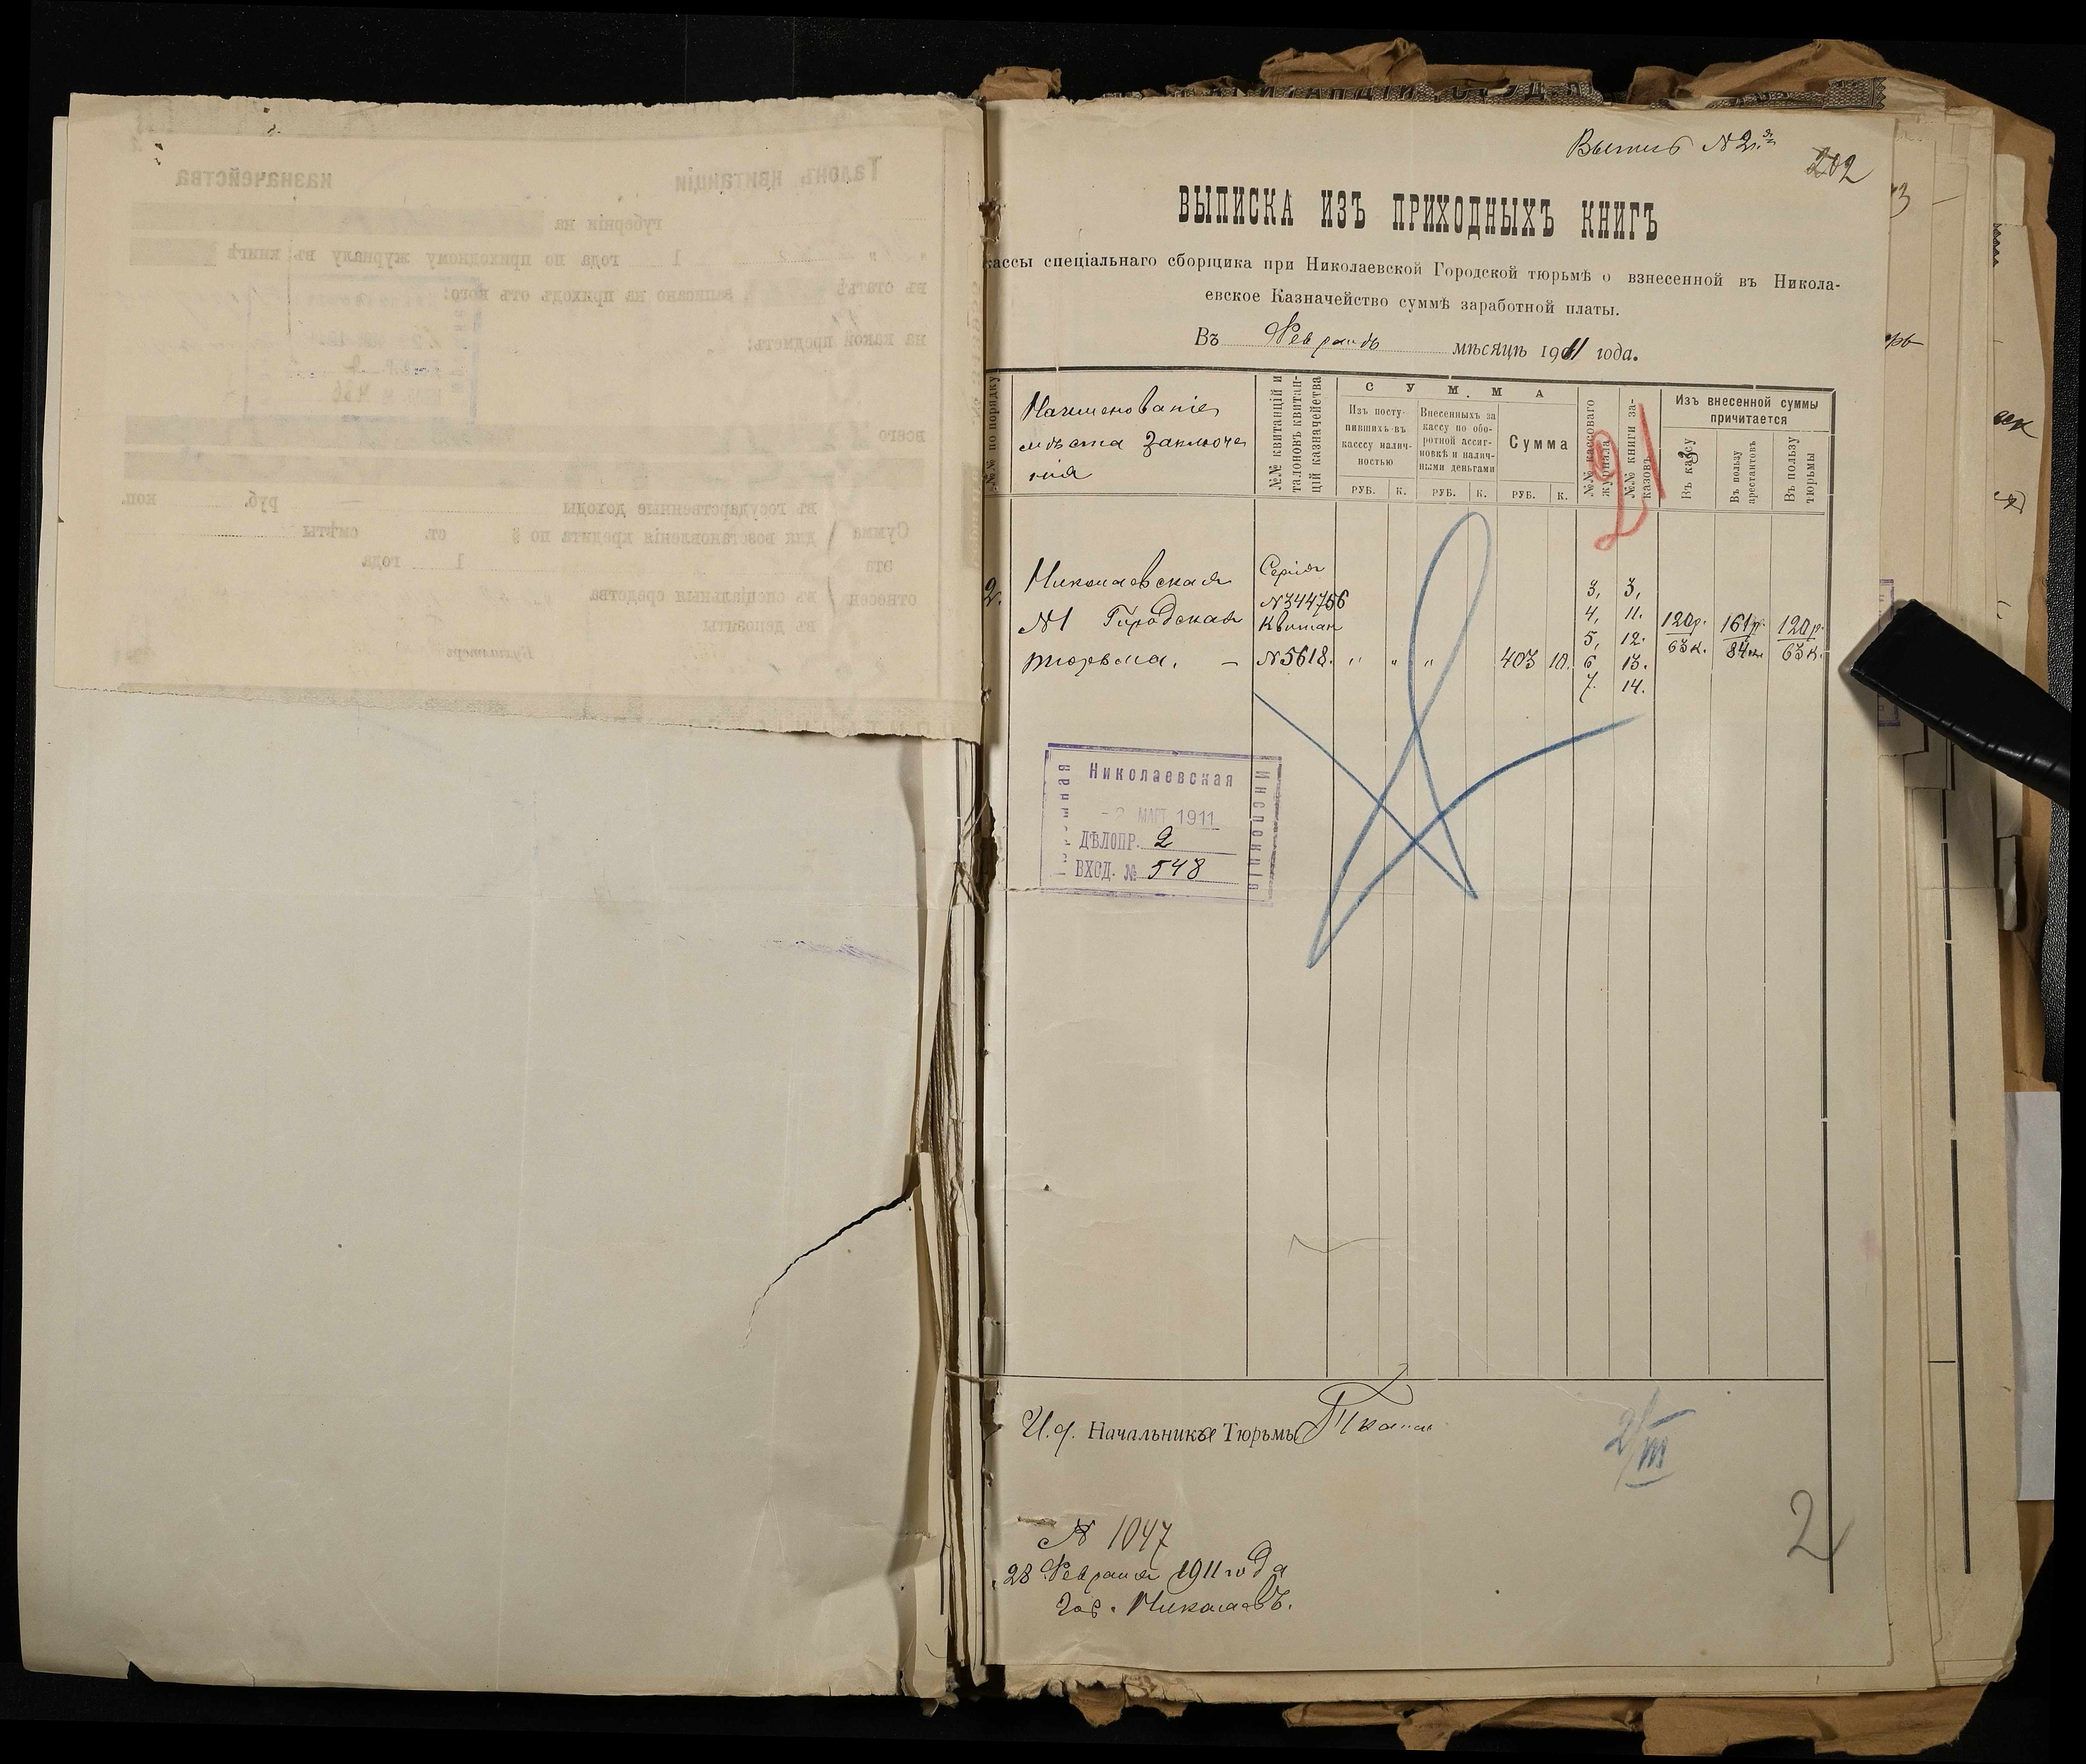 202
ВЫПИСКА ИЗЪ ПРИХОДНЫХЪ КНИГЪ
кассы спеціальнаго сборщика при Николаевской Городской тюрьмѣ о взнесенной въ Никола-
евское Казначейство суммѣ заработной платы.
Въ Февралѣ мѣсяцѣ 1911 года.
№№ по порядку
Наименованіе
мѣста заключе
нія
№№ квитанцій и
талоновъ квитан-
цій казначейства
СУММА
Изъ посту-
пившихъ въ
касссу налич-
ностью
Внесенныхъ за
кассу по обо-
ротной ассиг-
новкѣ и налич-
ными деньгами
Сумма
РУБ. К. РУБ. К. РУБ. К.
№№ кассоваго
журнала
№№ книги за-
казовъ
Изъ внесенной суммы
причитается
Въ кассу
Въ пользу
арестантовъ
Въ пользу
тюрьмы
21
2.
Николаевская
№1 Городская
тюрьма. —
Серія
№344756
Квитан
№5618. " " " 403 10.
3, 3,
4, 11.
5, 12.
6 13.
7. 14.
120р. 63к.
161р. 84к.
120р. 63к.
Николаевская
Инспекція
- 2 МАРТ 1911
ДѢЛОПР. 2
ВХОД. № 548
И.д. Начальника Тюрьмы
2/III
2
№ 1047
28 Февраля 1911 года
Гор. Николаевъ.
Талонъ квитанціи казначейства
губерніи на
1 года по приходному журналу въ книгѣ
въ статьѣ записано на приходъ отъ кого:
на какой предметъ:
всего
въ государственные доходы руб. коп.
Сумма для возстановленія кредита по § ст. смѣты
эта 1 года
отнесен въ спеціальныя средства
въ депозиты
Бухгалтеръ